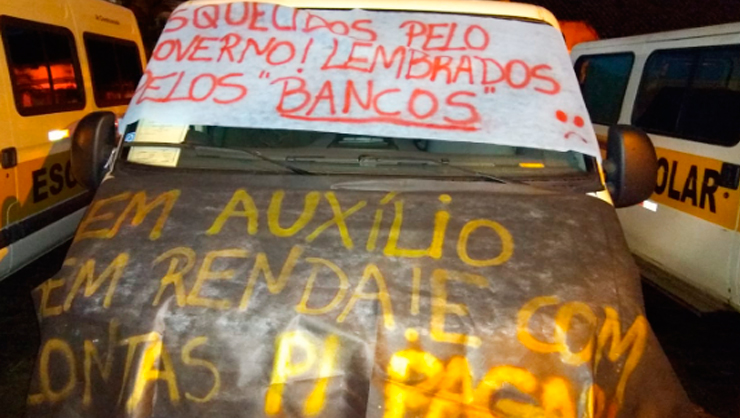 SQUECIDOS PELO
OVERNO! LEMBRADOS
PELOS "BANCOS"
EM AUXÍLIO
EM RENDA! E COM
ONTAS P/ PAGA
ESC
OLAR